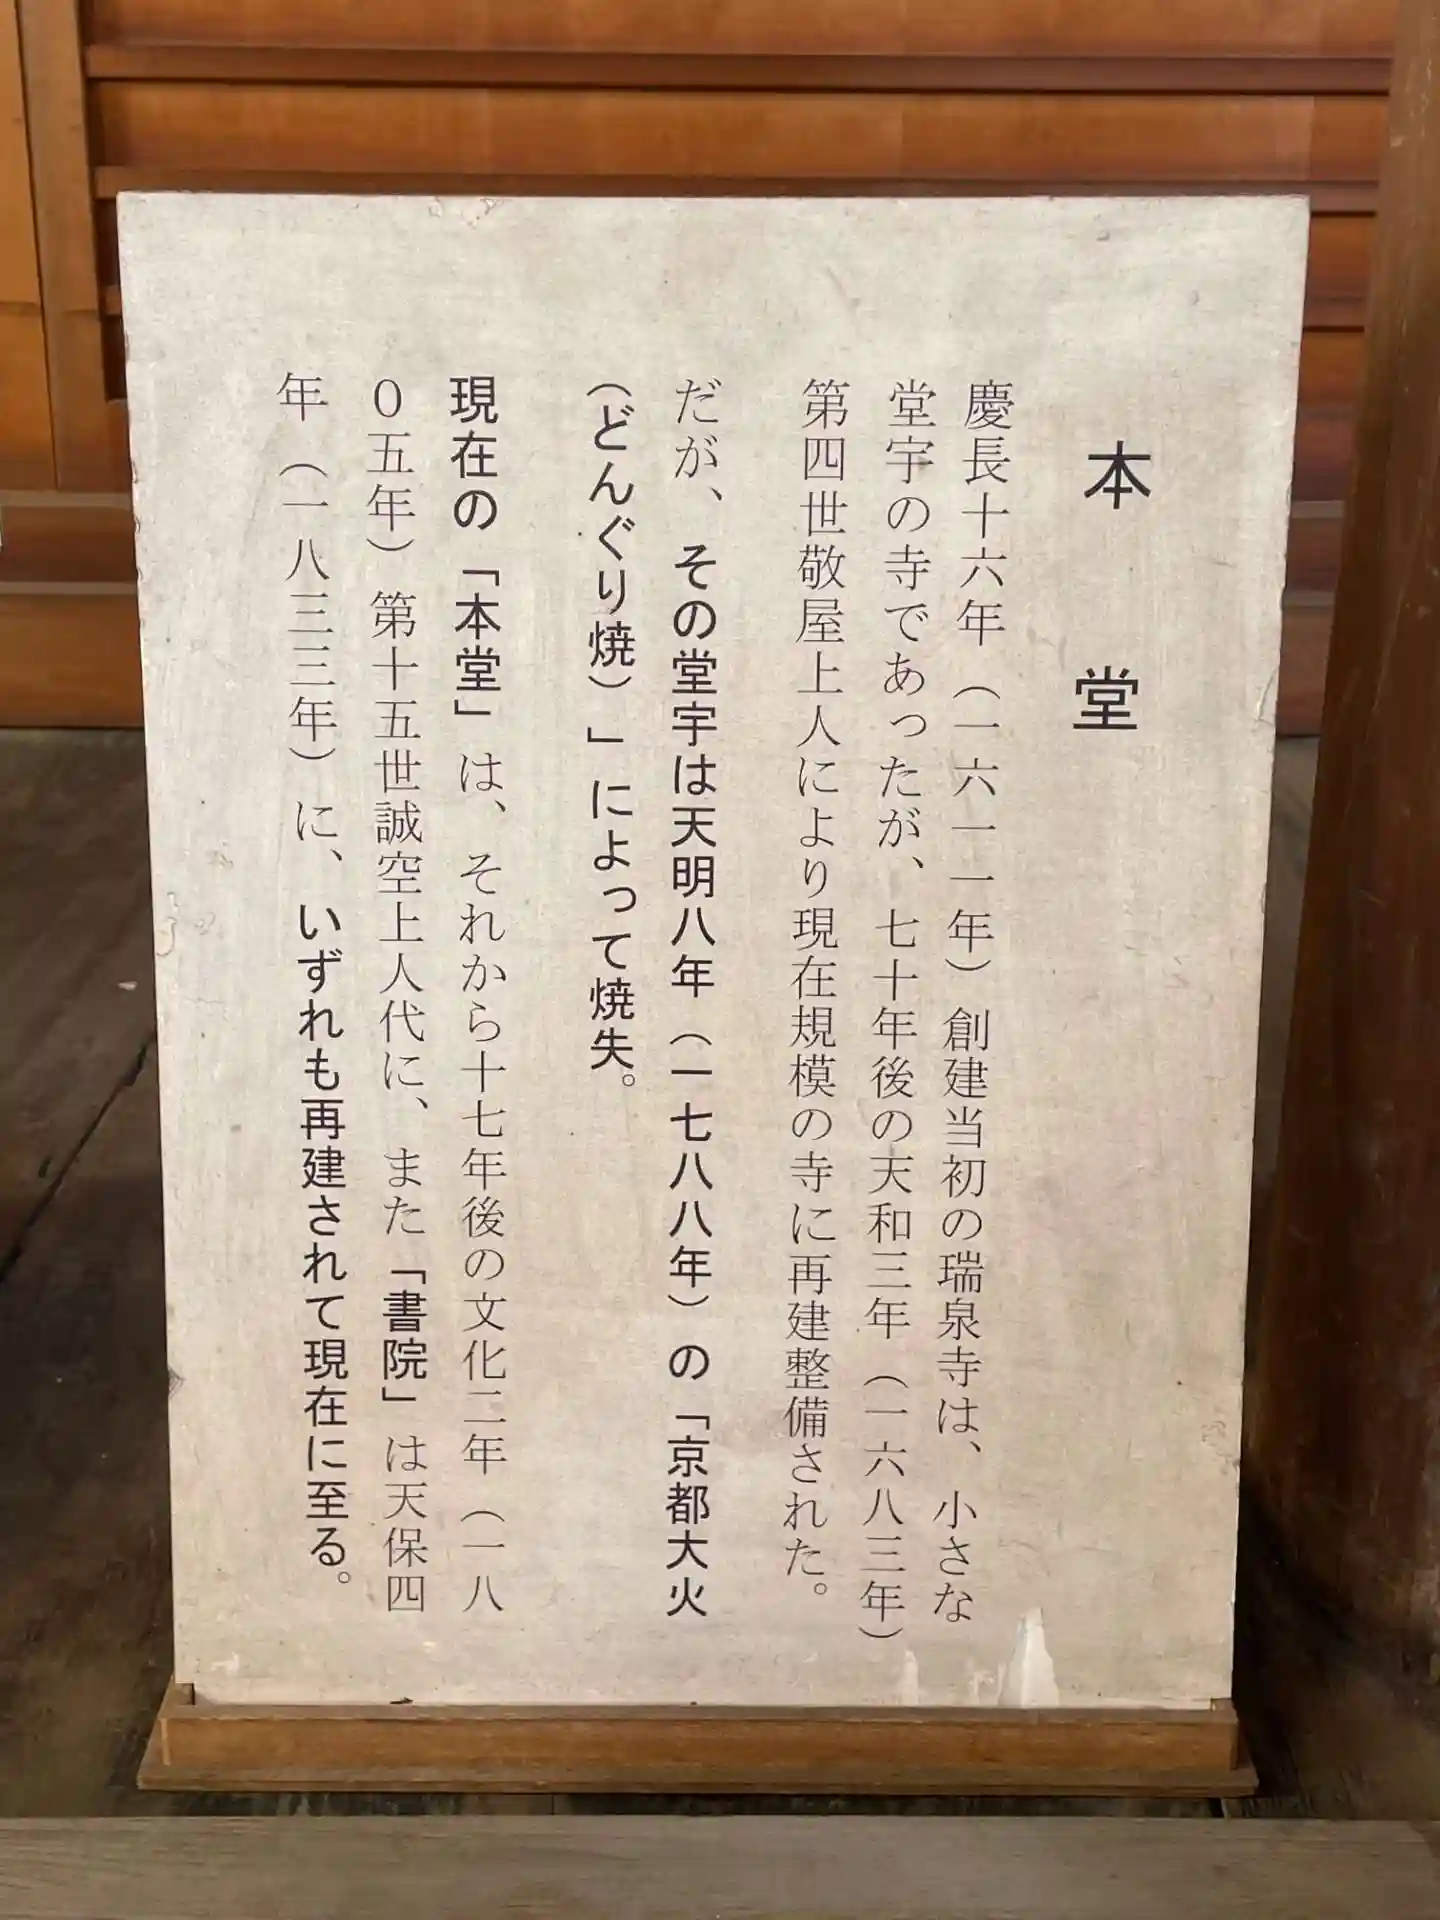 本堂
慶長十六年（一六一一年）創建当初の瑞泉寺は、小さな
堂宇の寺であったが、七十年後の天和三年（一六八三年）
第四世敬屋上人により現在規模の寺に再建整備された。
だが、その堂宇は天明八年（一七八八年）の「京都大火
（どんぐり焼）」によって焼失。
現在の「本堂」は、それから十七年後の文化二年（一八
０五年）第十五世誠空上人代に、また「書院」は天保四
年（一八三三年）に、いずれも再建されて現在に至る。